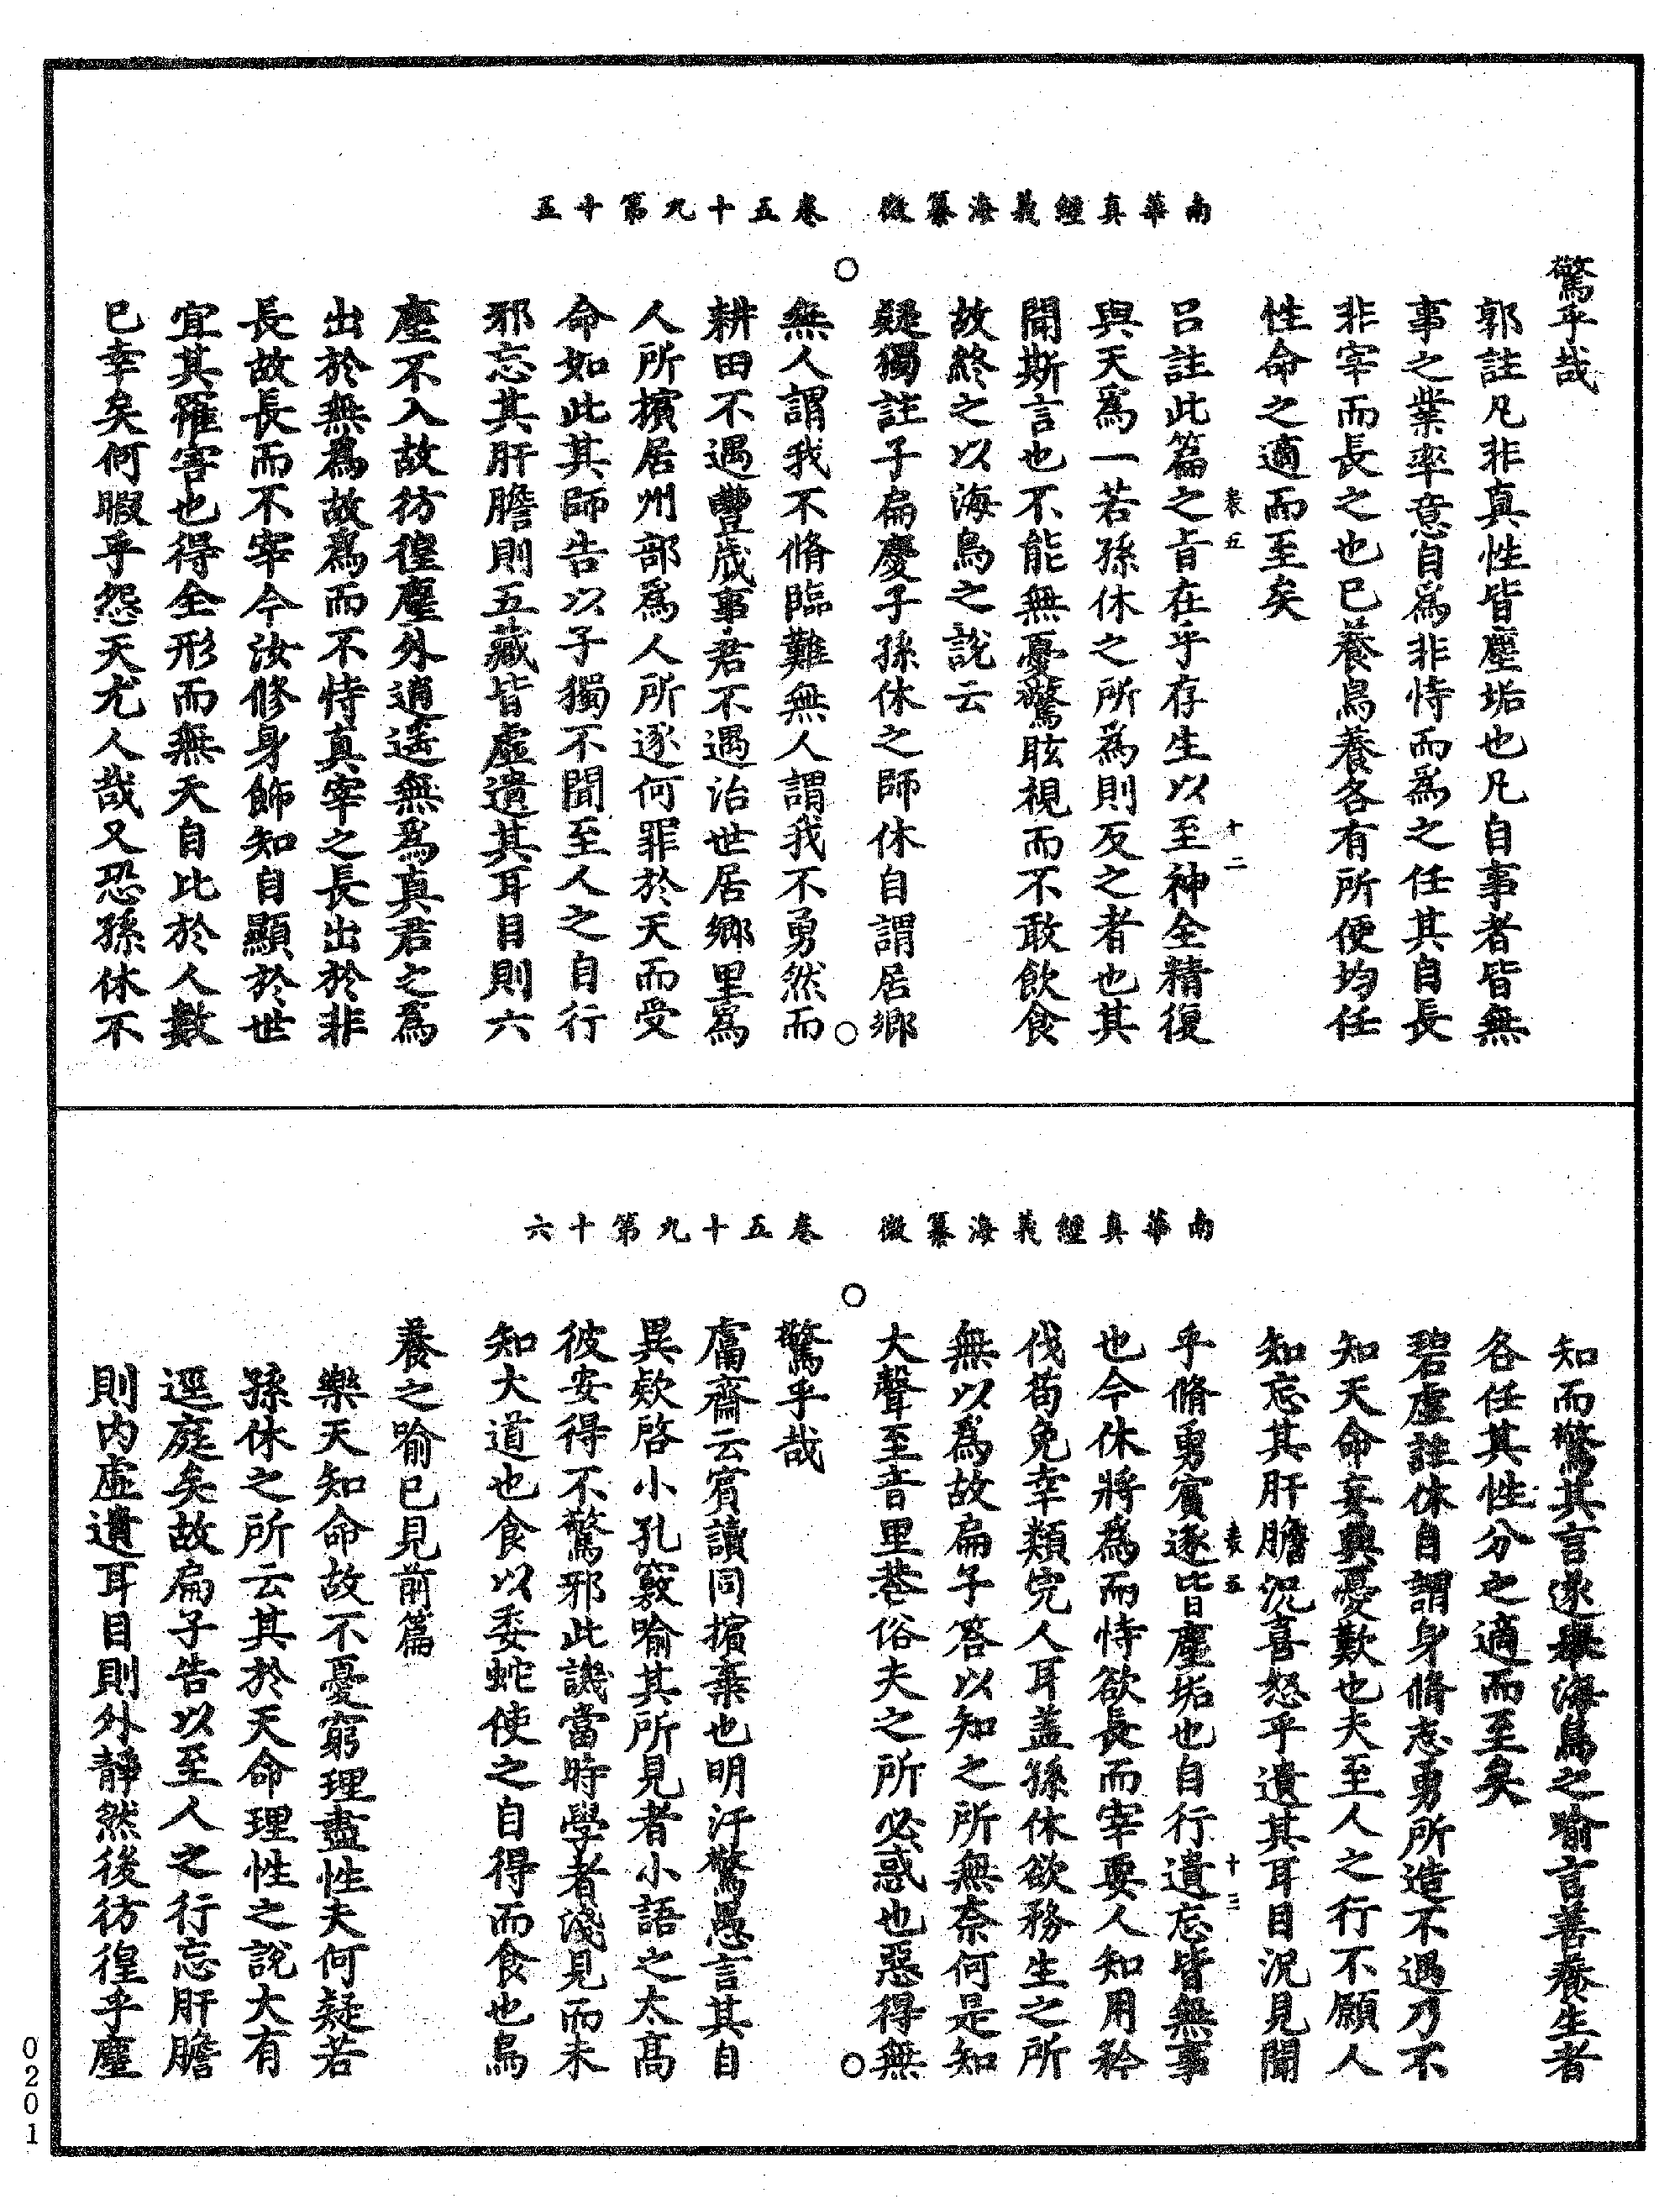 南華真經義海纂微　卷五十九第十五
驚乎哉
郭註凡非真性皆塵垢也凡自事者皆無
事之業率意自為非恃而為之任其自長
非宰而長之也已養鳥養各有所便均任
性命之適而至矣
表五　十二
呂註此篇之旨在乎存生以至神全精復
與天為一若孫休之所為則反之者也其
聞斯言也不能無憂驚眩視而不敢飲食
故終之以海鳥之說云
疑獨註子扁慶子孫休之師休自謂居鄉
無人謂我不脩臨難無人謂我不勇然而
耕田不遇豐歲事君不遇治世居鄉里為
人所擯居州部為人所逐何罪於天而受
命如此其師告以子獨不聞至人之自行
邪忘其肝膽則五藏皆虛遺其耳目則六
塵不入故彷徨塵外逍遙無為真君之為
出於無為故為而不恃真宰之長出於非
長故長而不宰今汝修身飾知自顯於世
宜其罹害也得全形而無夭自比於人數
已幸矣何暇乎怨天尤人哉又恐孫休不
南華真經義海纂微　卷五十九第十六
知而驚其言遂舉海鳥之喻言善養生者
各任其性分之適而至矣
碧虛註休自謂身脩志勇所造不遇乃不
知天命妄興憂歎也夫至人之行不願人
知忘其肝膽況喜怒乎遺其耳目況見聞
表五　十三
乎脩勇賓逐皆塵垢也自行遺忘皆無事
也今休將為而恃欲長而宰要人知用矜
伐苟免幸類完人耳蓋孫休欲務生之所
無以為故扁子答以知之所無奈何是知
大聲至音里巷俗夫之所必惑也惡得無
驚乎哉
鬳齋云賓讀同擯棄也明汙驚愚言其自
異欵啓小孔竅喻其所見者小語之太高
彼安得不驚邪此譏當時學者淺見而未
知大道也食以委蛇使之自得而食也鳥
養之喻已見前篇
樂天知命故不憂窮理盡性夫何疑若
孫休之所云其於天命理性之說大有
逕庭矣故扁子告以至人之行忘肝膽
則內虛遺耳目則外靜然後彷徨乎塵
0201